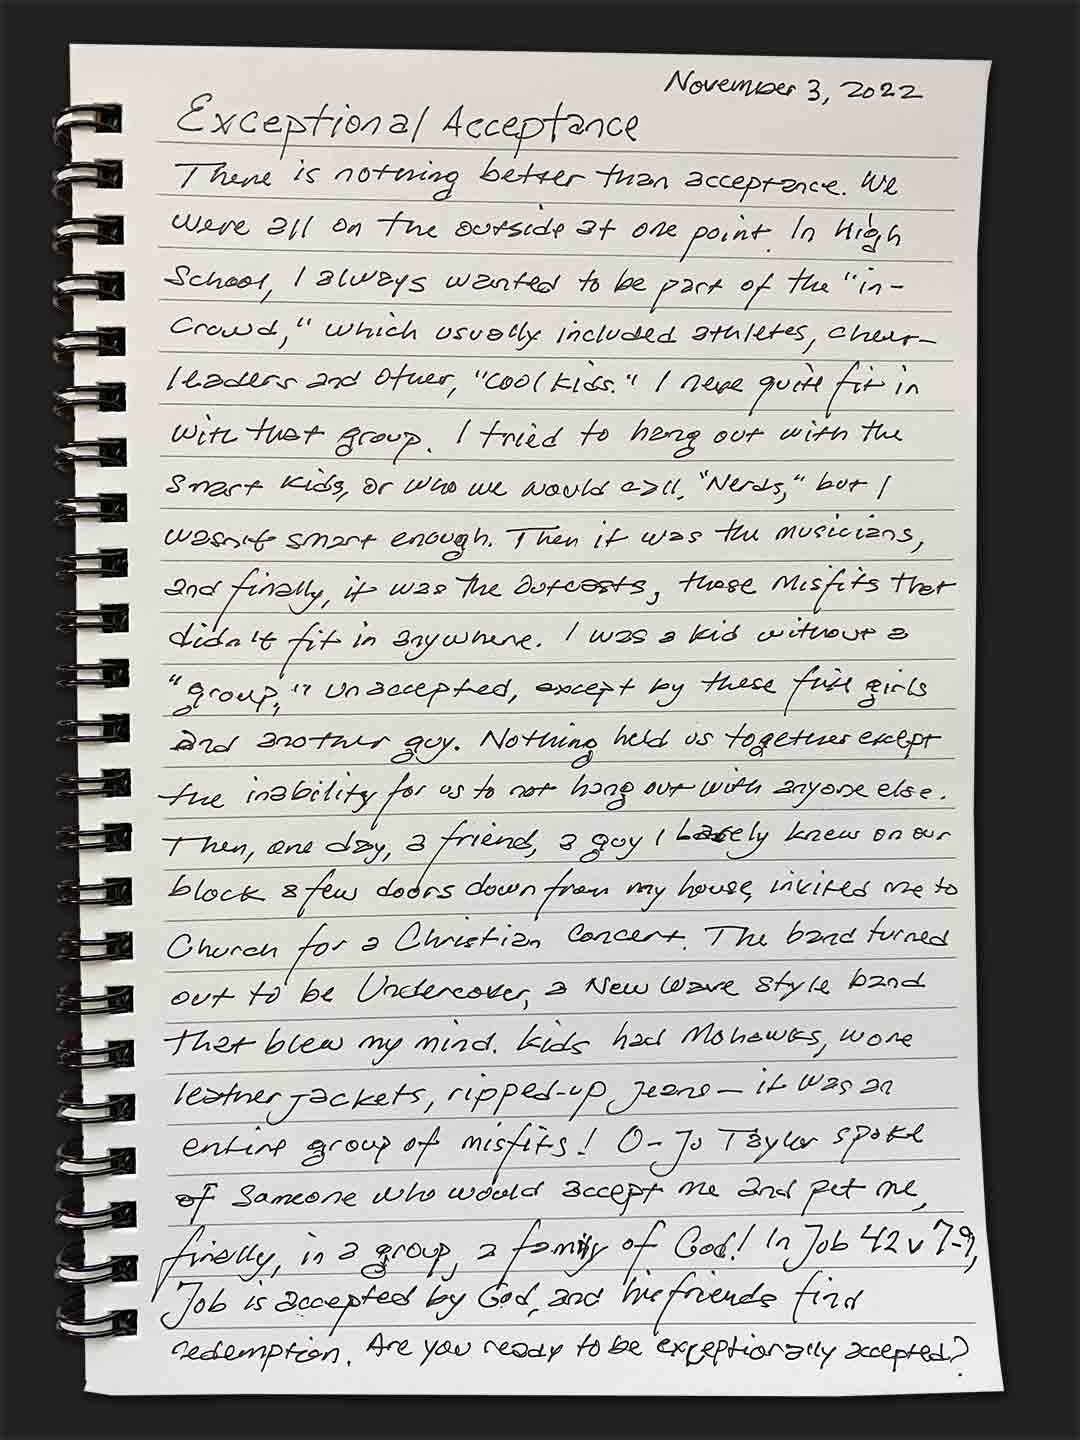 November 3, 2022
Exceptional Acceptance
There is nothing better than acceptance. We
were all on the outside at one point. In High
School, I always wanted to be part of the "in-
crowd," which usually included athletes, cheer-
leaders and other, "cool kids." I never quite fit in
with that group. I tried to hang out with the
smart kids, or who we would call, "Nerds," but I
wasn't smart enough. Then it was the musicians,
and finally, it was the outcasts, those misfits that
didn't fit in anywhere. I was a kid without a
"group," unaccepted, except by these five girls
and another guy. Nothing held us together except
the inability for us to not hang out with anyone else.
Then, one day, a friend, a guy I barely knew on our
block a few doors down from my house, invited me to
Church for a Christian Concert. The band turned
out to be Undercover, a New Wave style band
that blew my mind. Kids had Mohawks, wore
leather jackets, ripped-up jeans — it was an
entire group of misfits! O-Jo Taylor spoke
of Someone who would accept me and put me,
finally, in a group, a family of God! In Job 42 v 7-9,
Job is accepted by God, and his friends find
redemption. Are you ready to be exceptionally accepted?